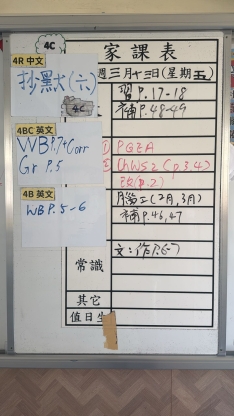 4C
家課表
週三月十三日(星期五)
4R 中文
抄黑大(六)
4C
習P.17-18
補P.48-49
4BC 英文
WB P.7+Corr
Gr P.5
① PGZA
② ChWS2 (p.3,4)
改(p.2)
4B 英文
WB P.5-6
補P.46,47
文:作P.6-7
常識
其它
值日生